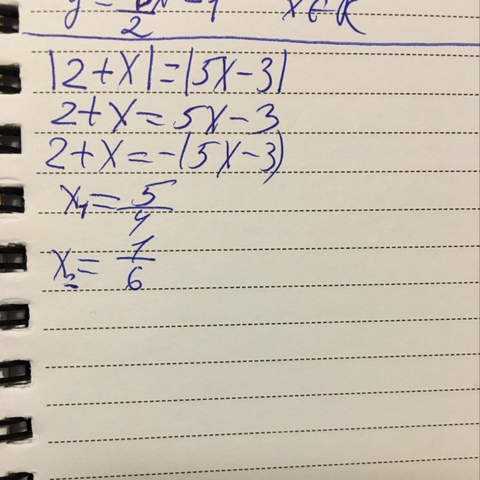 |2+x|=|5x-3|
2+x=5x-3
2+x=-(5x-3)
x₁=5/4
x₂=1/6